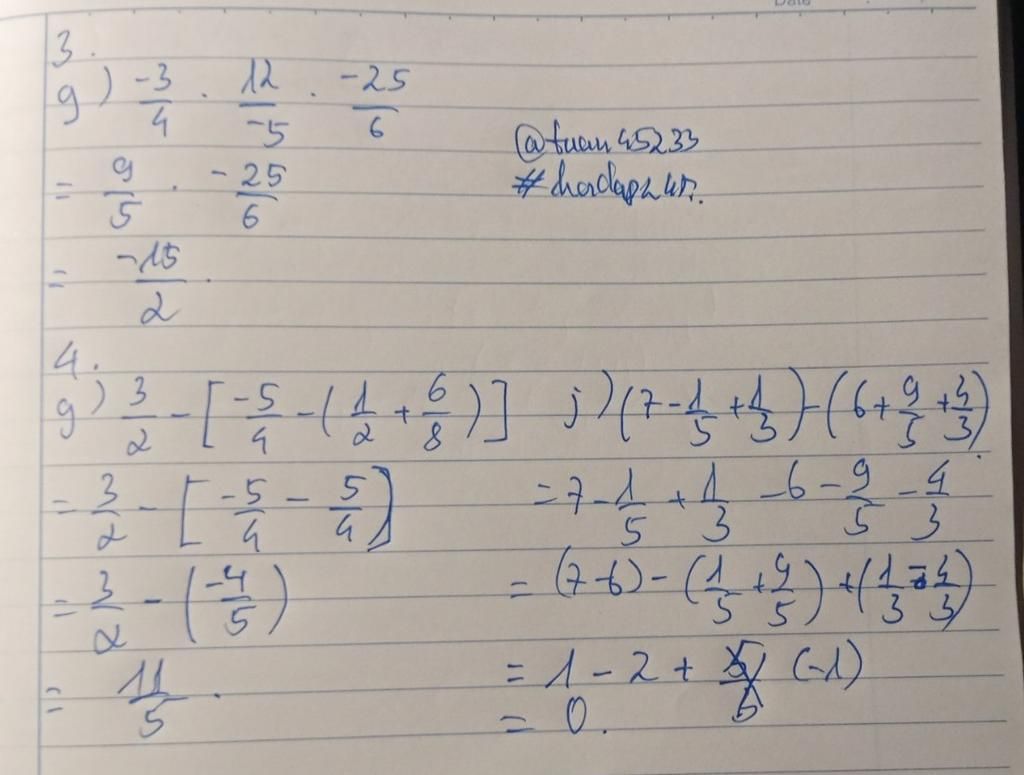 3.
g) -3/4 . 12/-5 . -25/6
= 9/5 . -25/6
@tuan45233
= -15/2 .
4.
g) 3/2 - [ -5/4 - ( 1/2 + 6/8 ) ]
= 3/2 - [ -5/4 - 5/4 ]
= 3/2 - ( -4/5 )
= 11/5 .
j) ( 7 - 1/5 + 1/3 ) - ( 6 + 9/5 + 4/3 ) .
= 7 - 1/5 + 1/3 - 6 - 9/5 - 4/3
= (7-6) - ( 1/5 + 9/5 ) + ( 1/3 - 4/3 )
= 1 - 2 + (-1)
= 0.